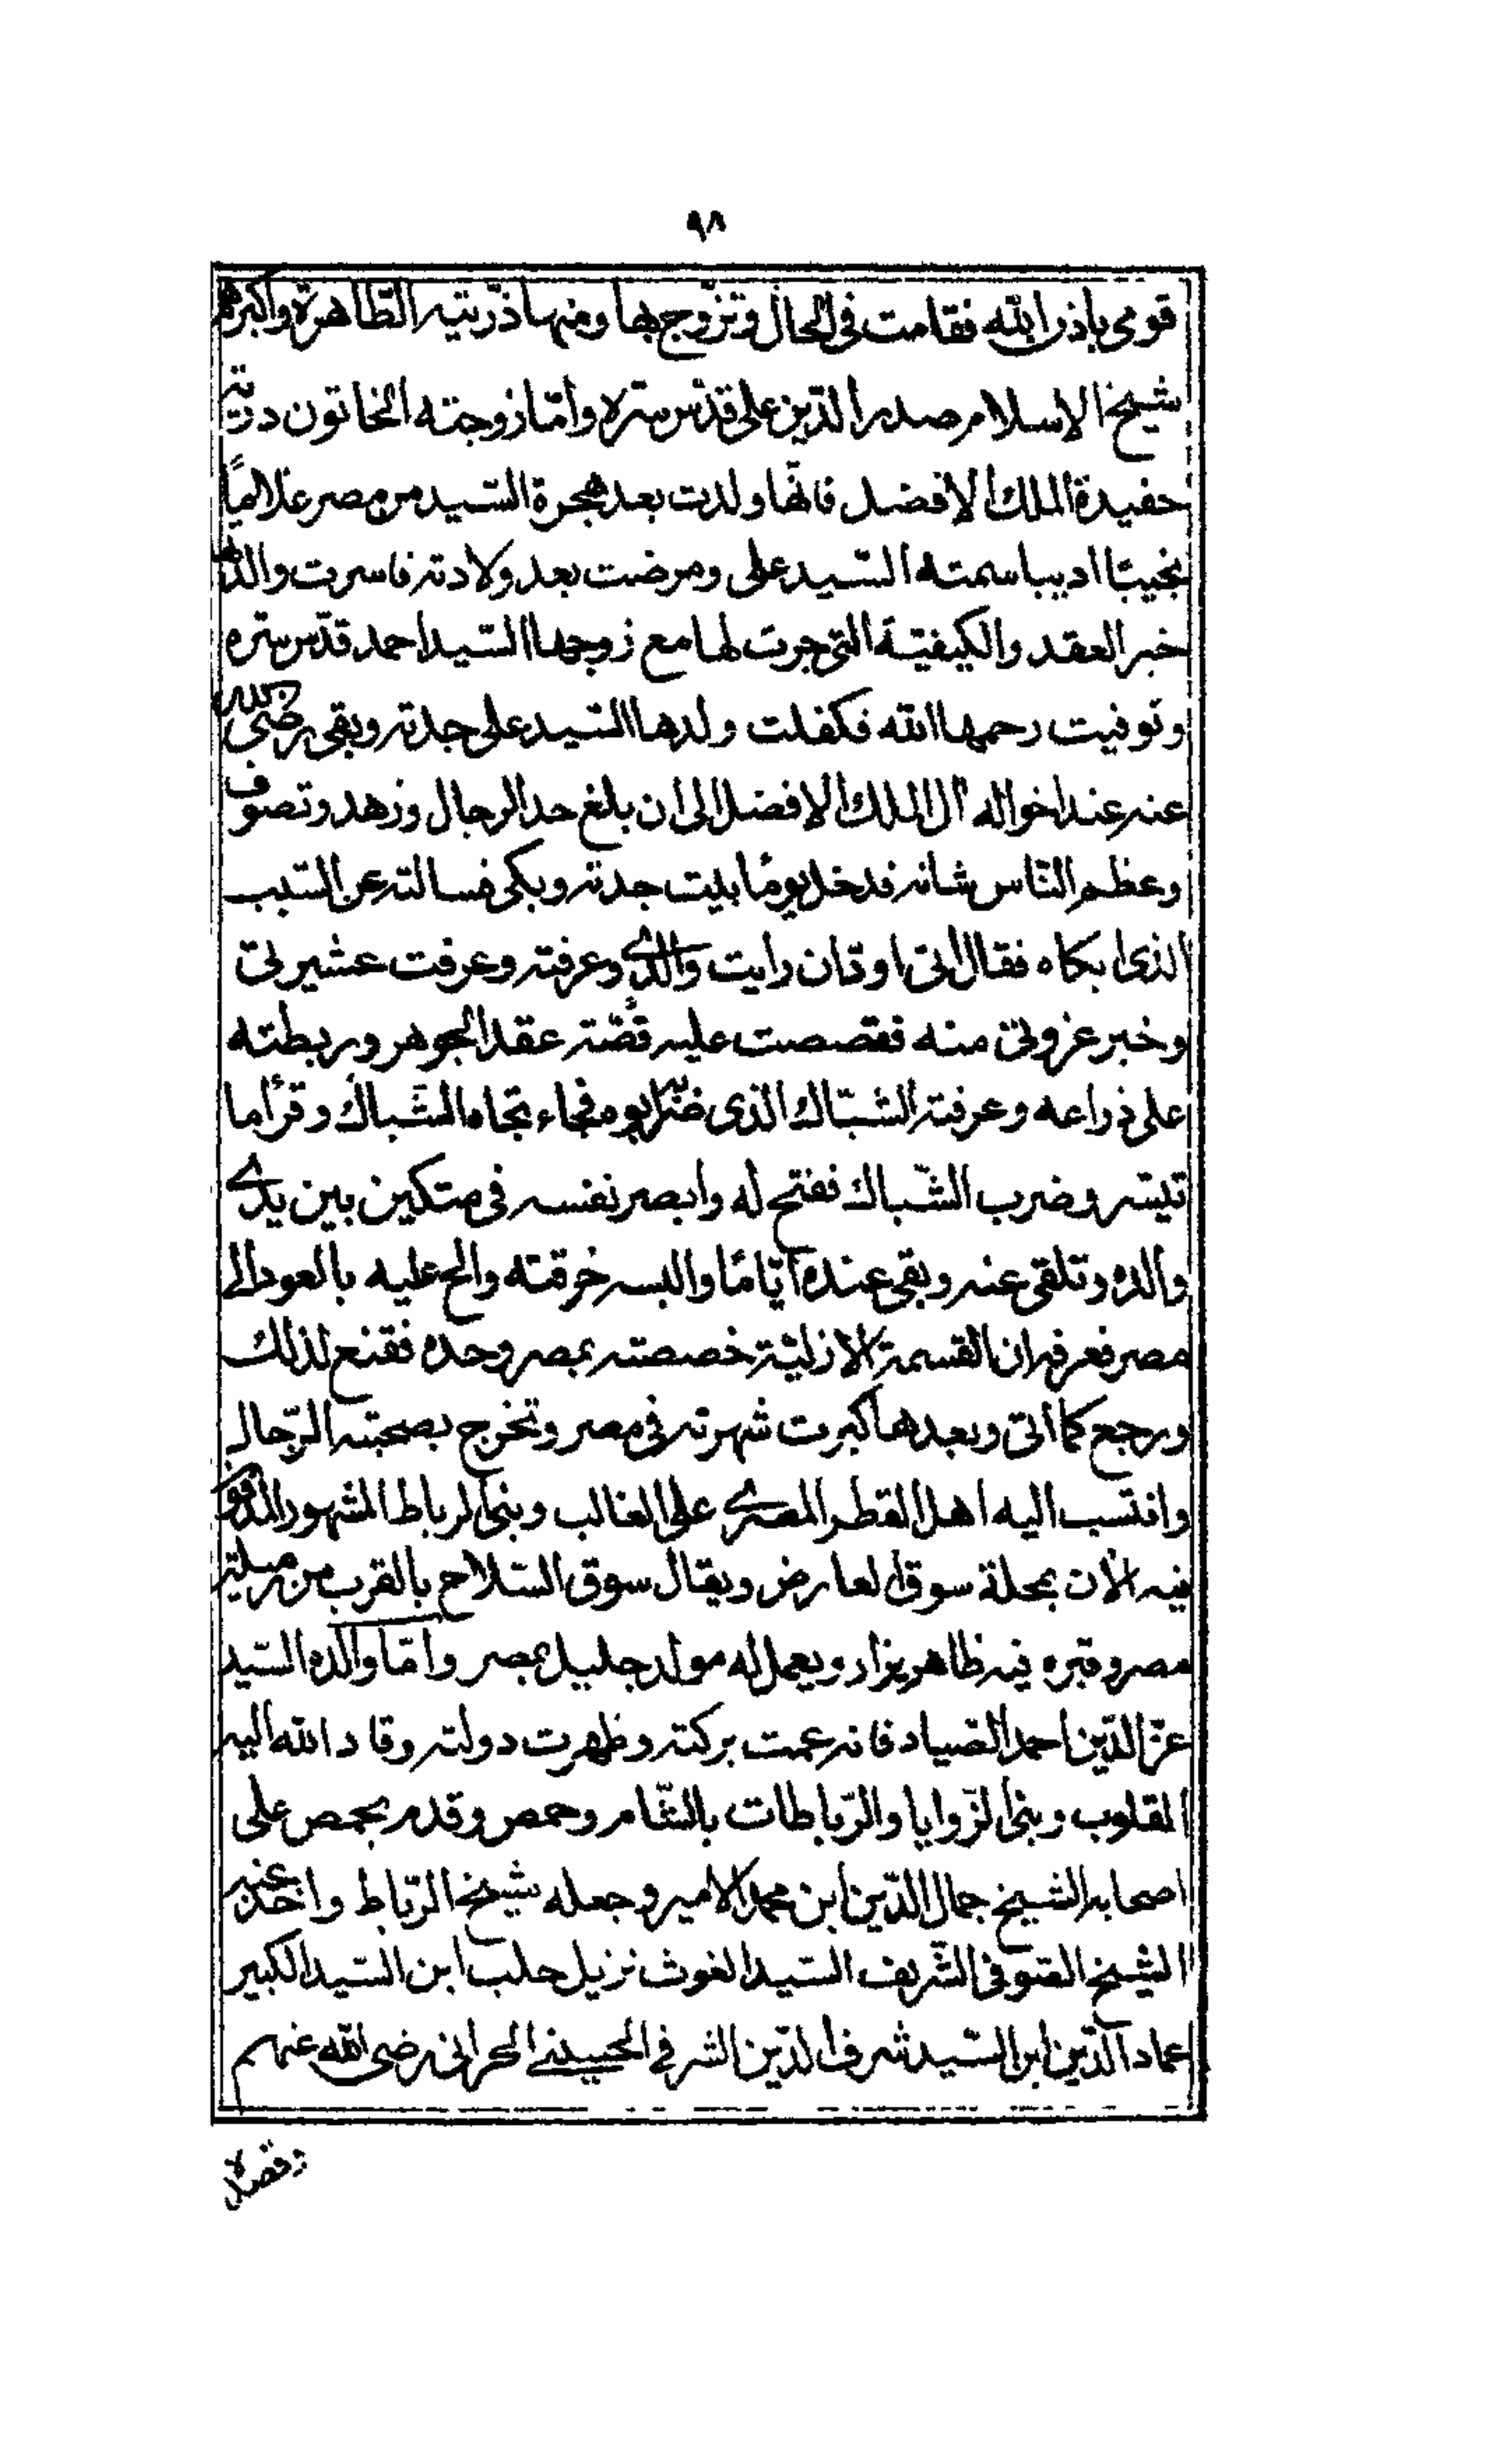 ٩٨
قومى باذن الله فقامت فى الحال وتزوج بها ومنها ذريته الطاهرة واكبرهم
شيخ الاسلام صدر الدين على قدس سره واما زوجته الخاتون درية
حفيدة الملك الافضل فانها ولدت بعد هجرة السيد من مصر غلاماً
نجيبا اديبا سمته السيد على ومرضت بعد ولادته فاسرت والدتها
خبر العقد والكيفية التى جرت لها مع زوجها السيد احمد قدس سره
وتوفيت رحمها الله فكفلت ولدها السيد على جدته وبقى رضى الله
عنه عند اخواله آل الملك الافضل الى ان بلغ حد الرجال وزهد وتصوف
وعظم الناس شانه فدخل يوماً بيت جدته وبكى فسالته عن السبب
الذى ابكاه فقال انى اود ان رايت والدى وعرفته وعرفت عشيرتى
وخبر عزوتى منه فقصصت عليه قصّة عقد الجوهر وربطته
على ذراعه وعرفته الشباك الذى ضربه ابوه فجاء تجاه الشباك وقرأ ما
تيسر وضرب الشباك ففتح له وابصر نفسه فى متكين بين يدى
والده وتلقى عنه وبقى عنده اياماً والبسه خرقته والح عليه بالعود الى
مصر فعرفه ان القسمة الازلية خصصته بمصر وحده فقنع لذلك
ورجع كما اتى وبعدها كبرت شهرته فى مصر وتخرج بصحبته الرجال
وانتسب اليه اهل القطر المصرى على الغالب وبنى الرباط المشهور المدفون
فيه الآن بمحلة سوق العارض ويقال سوق السلاح بالقرب من رميلة
مصر وقبره فيه ظاهر يزار ويعمل له مولد جليل بمصر واما والده السيد
عز الدين احمد الصياد فانه عمت بركته وظهرت دولته وقاد الله اليه
القلوب وبنى الزوايا والرباطات بالشام وحمص وقدم بحمص على
اصحابه الشيخ جمال الدين ابن محمد الامير وجعله شيخ الرباط واخذ عنه
الشيخ الصوفى الشريف السيد الغوث نزيل حلب ابن السيد الكبير
عماد الدين ابن السيد شرف الدين الشرفى الحسينى الحرانى رضى الله عنهم